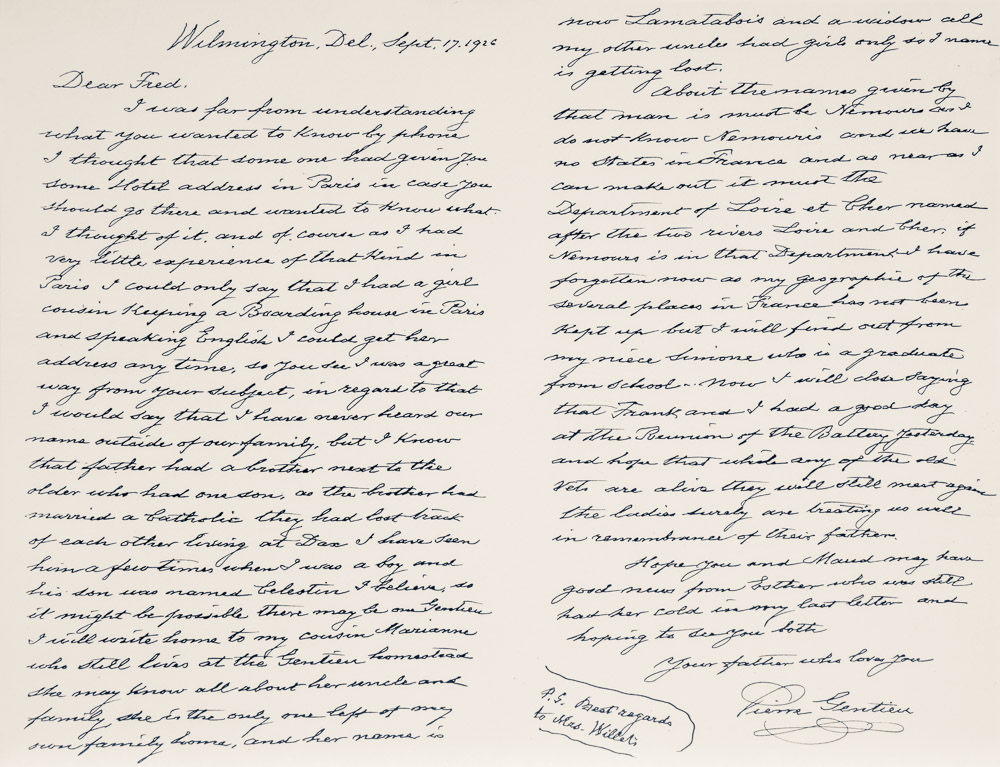 Wilmington, Del., Sept. 17. 1926
Dear Fred.
I was far from understanding
what you wanted to know by phone
I thought that some one had given you
some Hotel address in Paris in case you
should go there and wanted to know what
I thought of it. and of course as I had
very little experience of that kind in
Paris I could only say that I had a girl
cousin Keeping a Boarding house in Paris
and speaking English I could get her
address any time, so you see I was a great
way from your subject, in regard to that
I would say that I have never heard our
name outside of our family, but I know
that father had a brother next to the
older who had one son, as the brother had
married a Catholic they had lost track
of each other living at Dax I have seen
him a few times when I was a boy and
his son was named Celestin I believe, so
it might be possible there may be one Gentieu
I will write home to my cousin Marianne
who still lives at the Gentieu homestead
she may know all about her uncle and
family, she is the only one left of my
own family home, and her name is
now Lamatabois and a widow all
my other uncles had girls only so I name
is getting lost.
About the names given by
that man is must be Nemours as I
do not know Nemouris and we have
no States in France and as near as I
can make out it must the
Department of Loire et Cher named
after the two rivers Loire and Cher, if
Nemours is in that Department. I have
forgotten now as my geographie of the
several places in France has not been
Kept up but I will find out from
my niece Simone who is a graduate
from school -. Now I will close saying
that Frank and I had a good day
at the Reunion of the Battery yesterday
and hope that while any of the old
Vets are alive they will still meet again
the ladies surely are treating us well
in remembrance of their father.
Hope you and Maud may have
good news from Esther who was still
had her cold in my last letter and
hoping to see you both
Your father who love you
Pierre Gentieu
P.S. Best regards
to Mrs. Willets